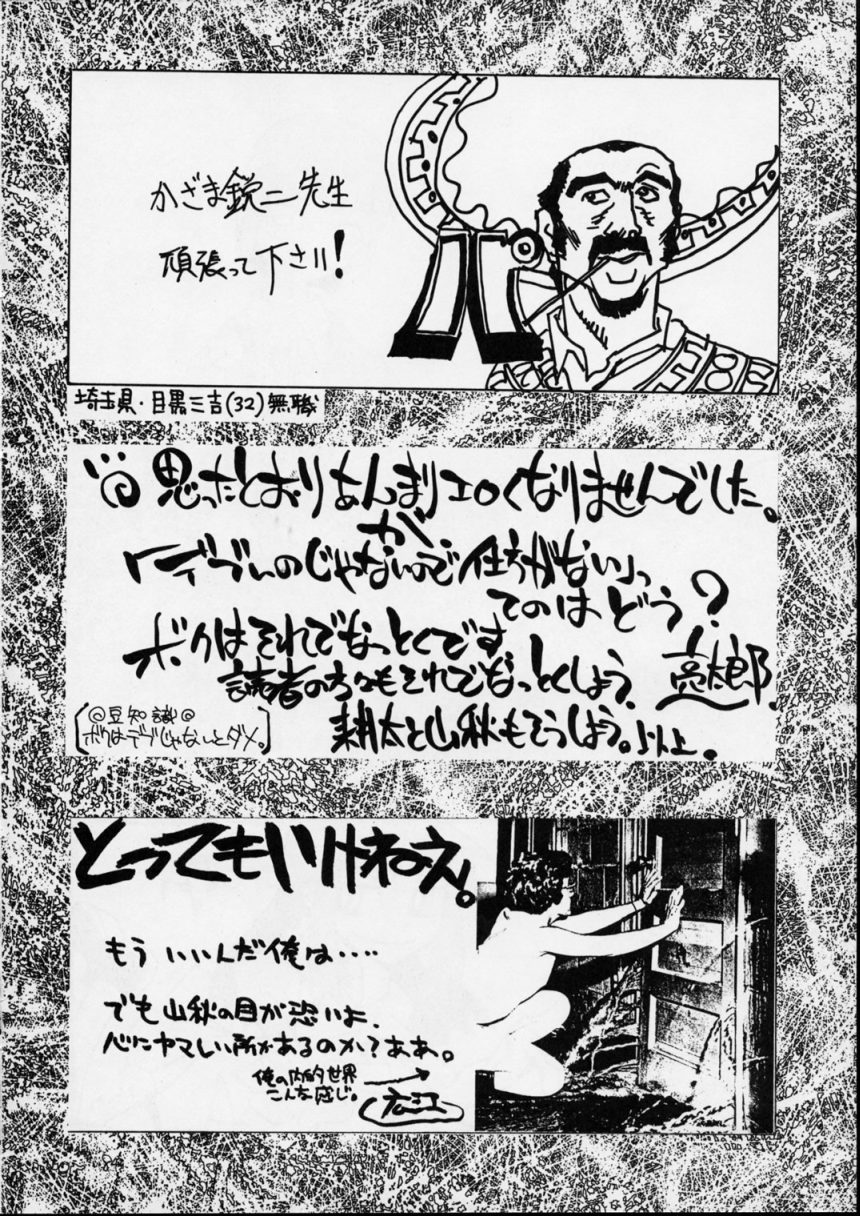 かざま鋭二先生
頑張って下さい!
埼玉県・目黒三吉(32)無職
思ったとおりあんまりエロくなりませんでした。
が
「デブいのじゃないので仕方がない」っ
てのはどう?
ボクはそれでなっとくです
読者の方々もそれでなっとくしよう。
亮太郎.
耕太と山秋もそうしよう。以上。
[@豆知識@
ボクはデブじゃないとダメ。]
とってもいけねえ。
もういいんだ俺は‥‥
でも山秋の目が恐いよ、
心にヤマしい所があるのか?ああ。
俺の内的世界
こんな感じ。
広江